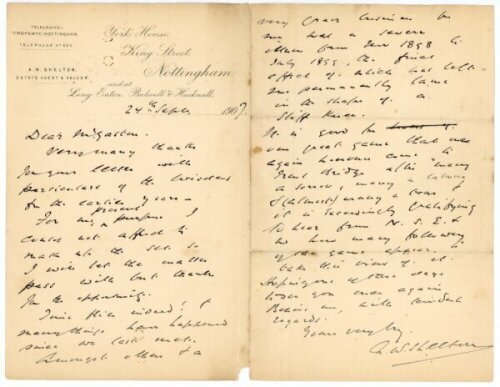 TELEGRAMS:
"PROPERTY," NOTTINGHAM.
TELEPHONE
A. W. SHELTON,
ESTATE AGENT & VALUER.
York House,
King Street,
Nottingham.
and at
Long Eaton, Bulwell & Hucknall.
24th Septr 1907.
Dear Mr Gaston.
Very many thanks
for your letter with
particulars of the Wisdens
for the earlier years—
For my present purpose I
could not afford to
make up the set so
I will let the matter
pass with but thanks
for the opportunity.
Time flies indeed! &
many things have happened
since we last met.
Amongst others a
my
me was a severe
illness from Jan 1898 to
July 1899, the final
effect of which has left
me permanently lame
in the shape of a
stiff knee.
It is good for
our great game that
again honours come to
Trent Bridge after many
a sorrow, many a
(almost) many a tear &
it is exceedingly gratifying
to hear from N. S. E & W
how many followers
of the game appear
to take this view of it.
Hoping one of these days
to see you once again
Believe me, with kindest
regards.
Yours very truly.
A. W. Shelton